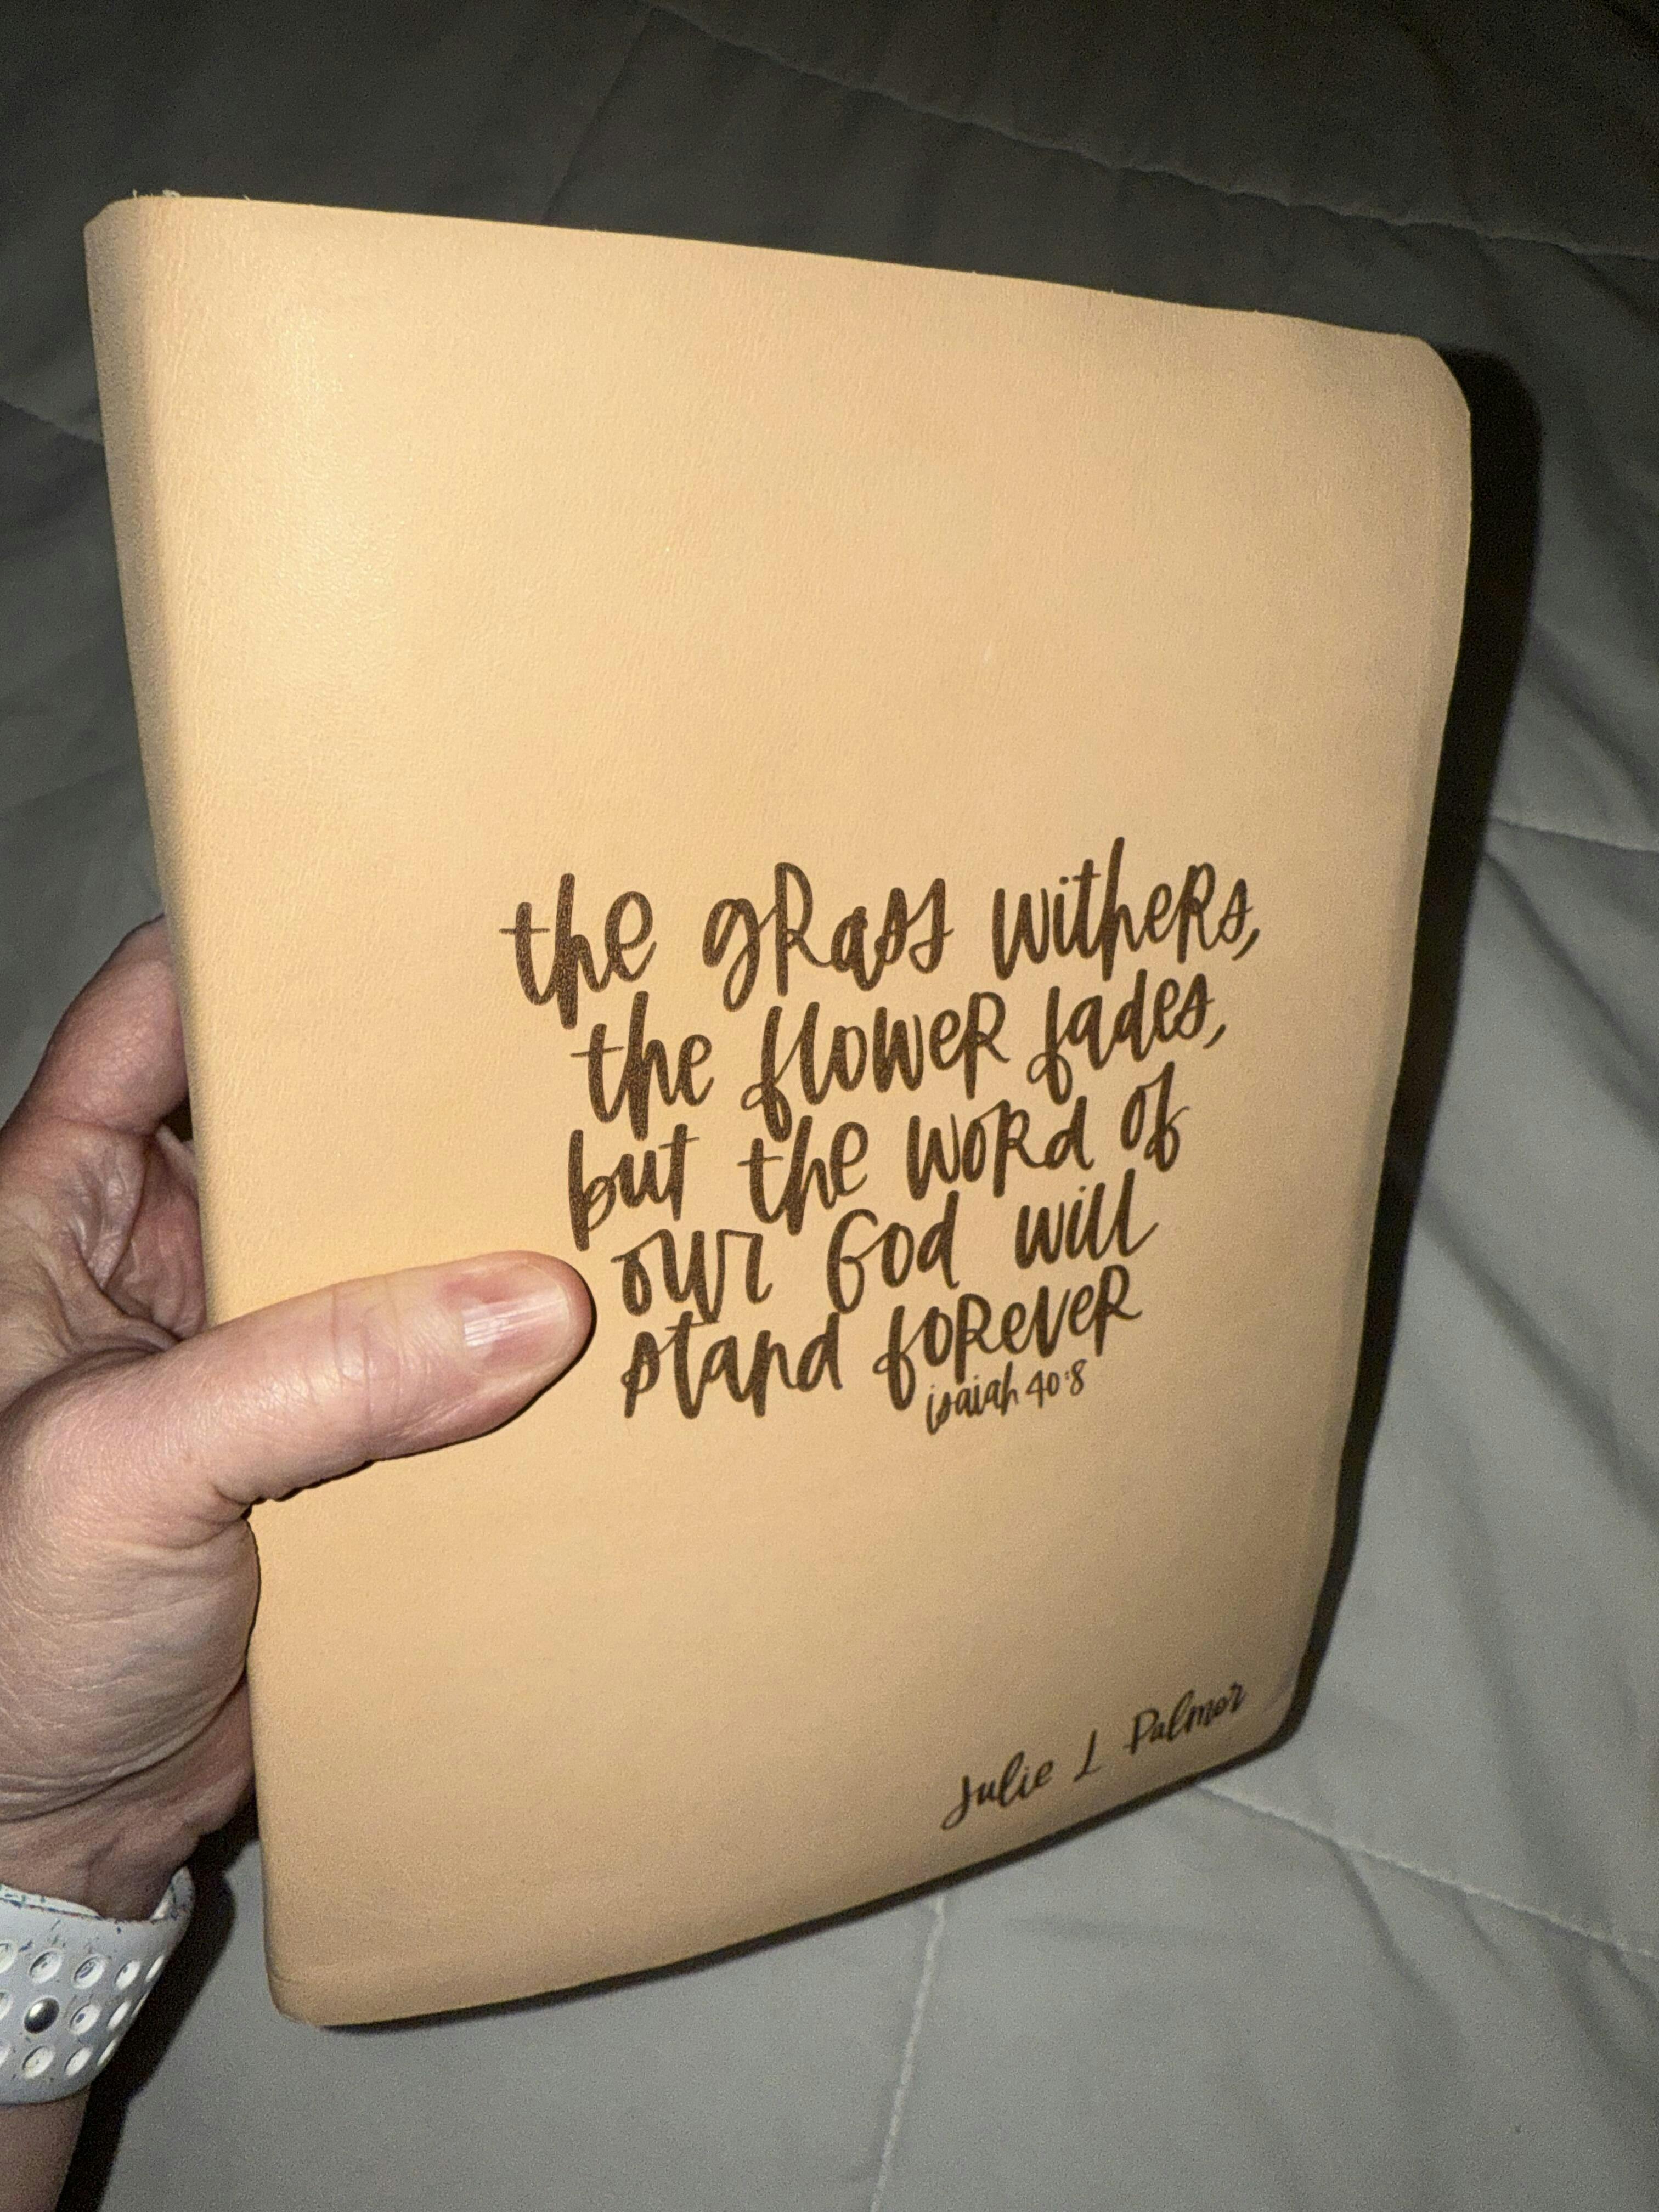 the grass withers,
the flower fades,
but the word of
our God will
stand forever
isaiah 40:8
Julie L Palmer